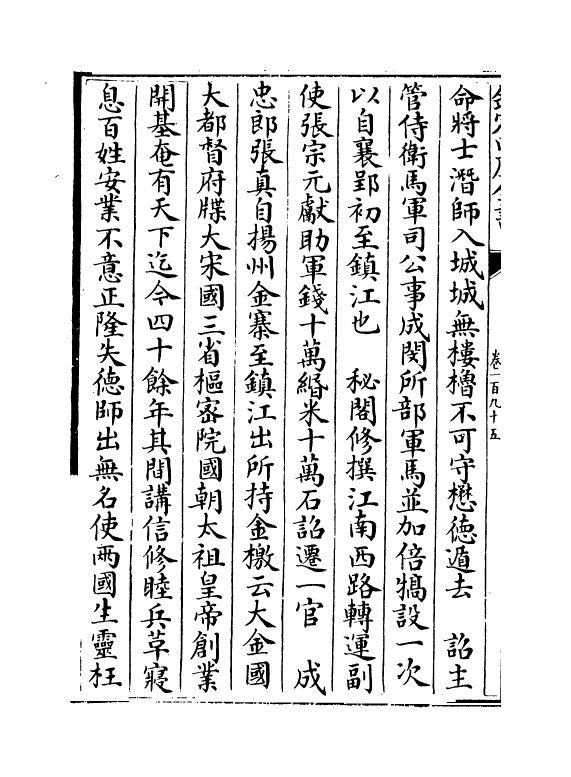 命將士潛師入城城無樓櫓不可守懋德遁去　詔主
管侍衛馬軍司公事成閔所部軍馬並加倍犒設一次
以自襄郢初至鎮江也　秘閣修撰江南西路轉運副
使張宗元獻助軍錢十萬緡米十萬石詔遷一官　成
忠郎張真自揚州金寨至鎮江出所持金檄云大金國
大都督府牒大宋國三省樞宻院國朝太祖皇帝創業
開基奄有天下迄今四十餘年其間講信修睦兵革寢
息百姓安業不意正隆失德師出無名使兩國生靈枉
卷一百九十五